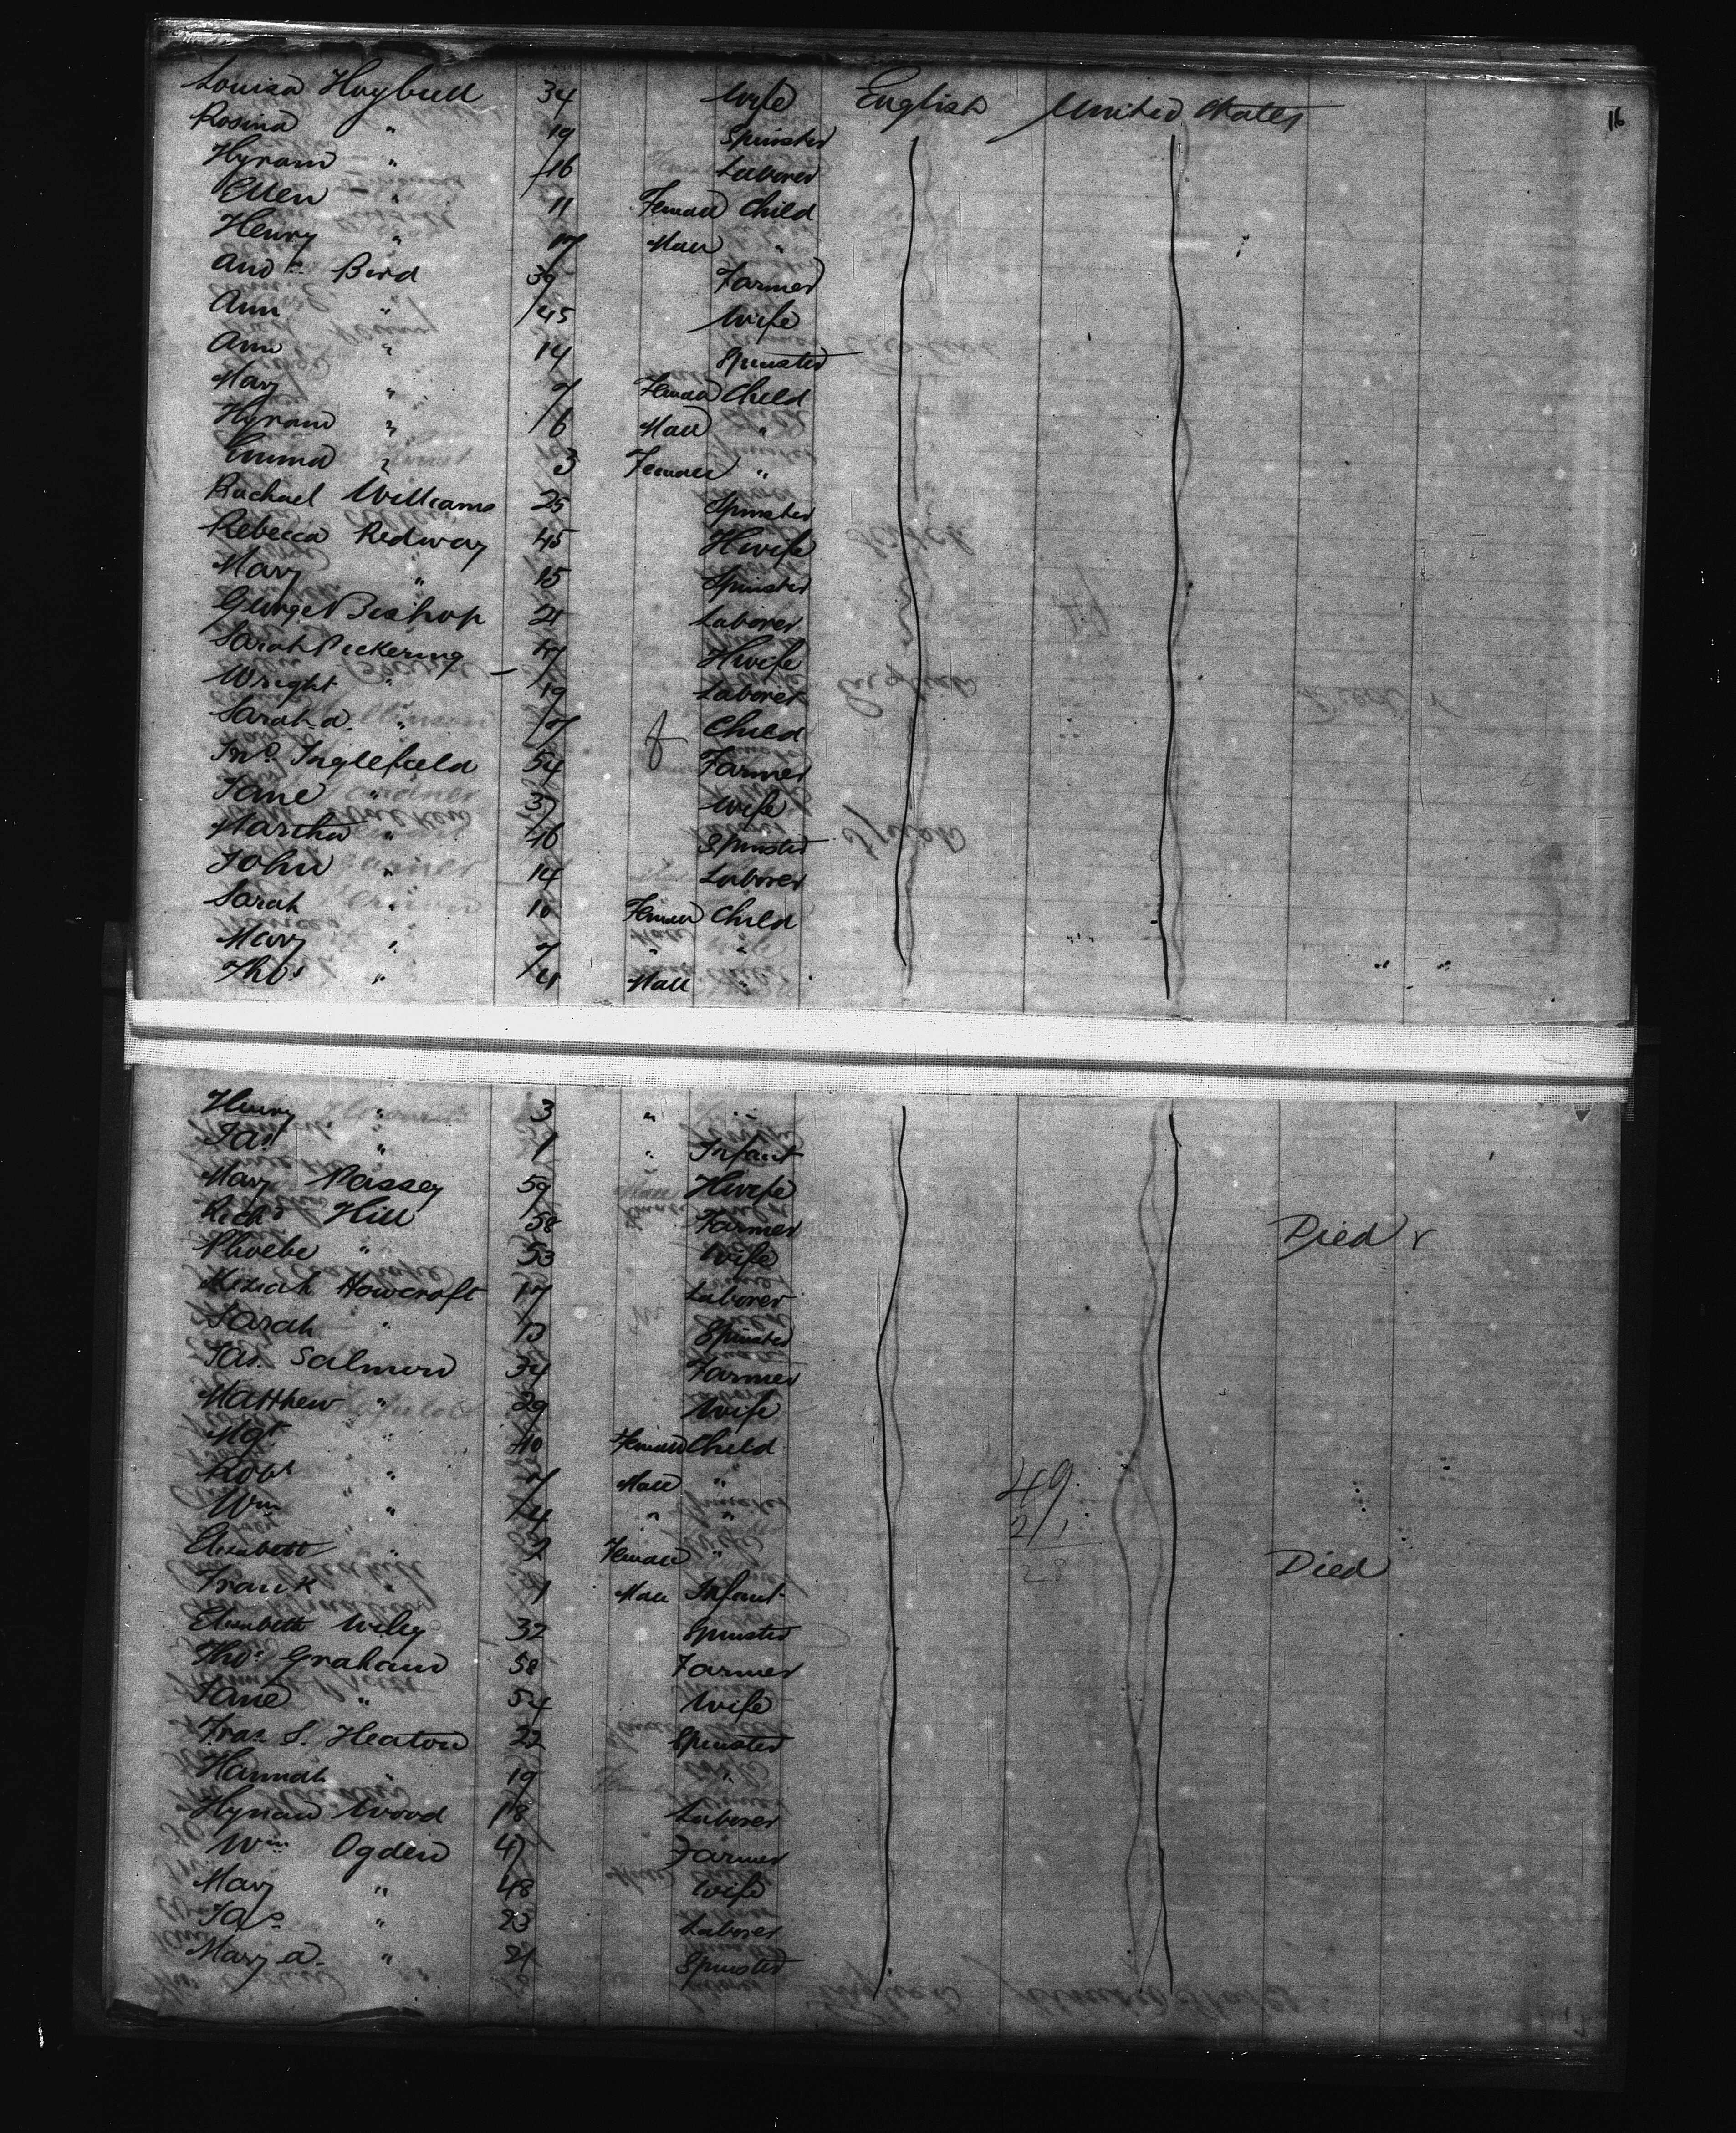 Louisa Huybull 34 Wife English United States 116
Rosina " 19 Spinster
Hyram " 16 Laborer
Ellen " 11 Female Child
Henry " 7 Male "
And w Bird 39 Farmer
Ann " 45 Wife
Ann " 14 Spinster
Mary " 7 Female Child
Hyram " 6 Male "
Emma " 3 Female "
Rachael Williams 25 Spinster
Rebecca Redway 45 Hwife
Mary " 15 Spinster
George Bishop 21 Laborer
Sarah Pickering 47 Hwife
Wright " 19 Laborer
Sarah a " 7 f Child
Jno. Inglefield 54 Farmer
Jane " 37 Wife
Martha " 16 Spinster
John " 14 Laborer
Sarah " 10 Female Child
Mary " 7 " "
Thos " 4 Male "
Henry " 3 " "
Jas " 1 " Infant
Mary Passey 59 Hwife
Richd Hill 58 Farmer Died
Phoebe " 53 Wife
Howcroft 17 Laborer
Sarah " 13 Spinster
Jas. Salmond 34 Farmer
Matthew " 29 Wife
Mgt " 10 Female Child
Robt " 7 Male " 49
Wm " 4 " " 21
Elizabeth " 2 Female " Died
Frank " 1 Male Infant
Elizabeth Wiley 32 Spinster
Thos Graham 58 Farmer
Jane " 54 Wife
Fras. S. Heaton 22 Spinster
Hannah " 19 "
Hyram Wood 18 Laborer
Wm Ogden 47 Farmer
Mary " 48 Wife
Jas " 23 Laborer
Mary a. " 21 Spinster